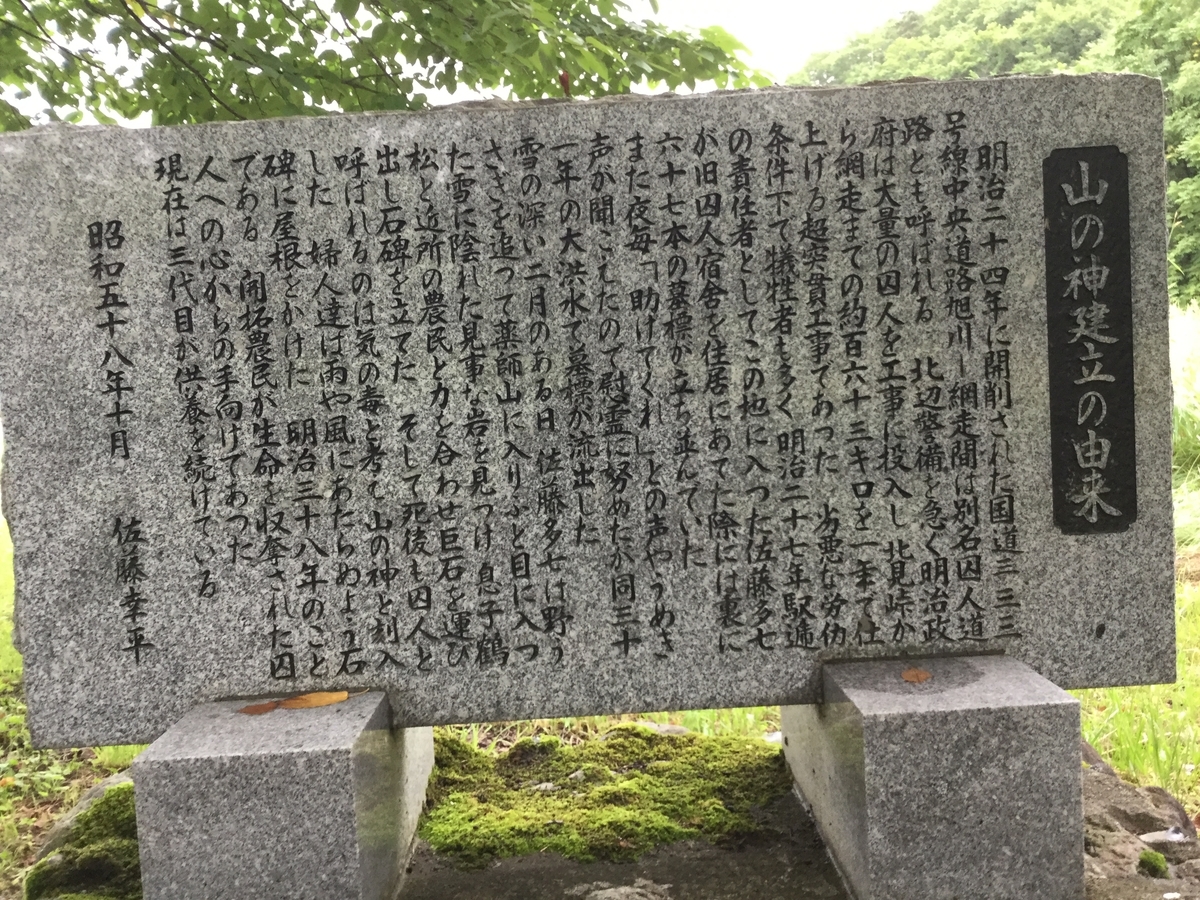 山の神建立の由来
明治二十四年に開削された国道三三三
号線中央道路旭川ー網走間は別名囚人道
路とも呼ばれる 北辺警備を急ぐ明治政
府は大量の囚人を工事に投入し北見峠か
ら網走まての約百六十三キロを一年て仕
上げる超突貫工事てあった 劣悪な労仂
条件下て犠牲者も多く 明治二十七年駅逓
の責任者としてこの地に入った佐藤多七
が旧囚人宿舎を住居にあてた際には裏に
六十七本の墓標が立ち並んていた
また夜毎「助けてくれ」との声やうめき
声が聞こえたのて慰霊に努めたが同三十
一年の大洪水て墓標が流出した
雪の深い二月のある日 佐藤多七は野う
さぎを追って薬師山に入りふと目に入つ
た雪に陰れた見事な岩を見つけ息子鶴
松と近所の農民と力を合わせ巨石を運び
出し石碑を立てた そして死後も囚人と
呼ばれるのは気の毒と考て山の神と刻入
した 婦人達は雨や風にあたらぬよう石
碑に屋根をかけた 明治三十八年のこと
てある 開拓農民が生命を収奪された囚
人への心からの手向けてあった
現在は三代目が供養を続けている
昭和五十八年十月 佐藤幸平